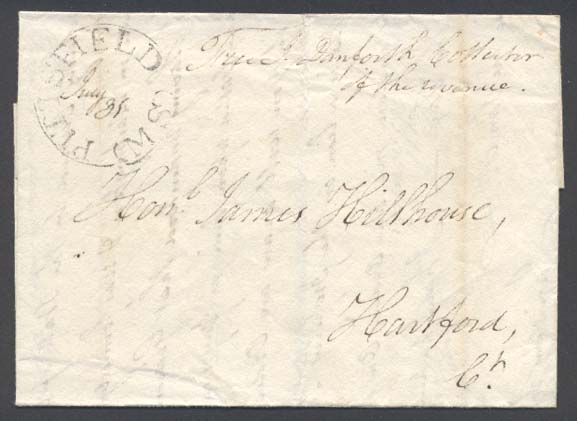 PITTSFIELD MS.
July
31
Free J. Danforth Collector
of the revenue.
Honbl James Hillhouse,
Hartford,
Ct.